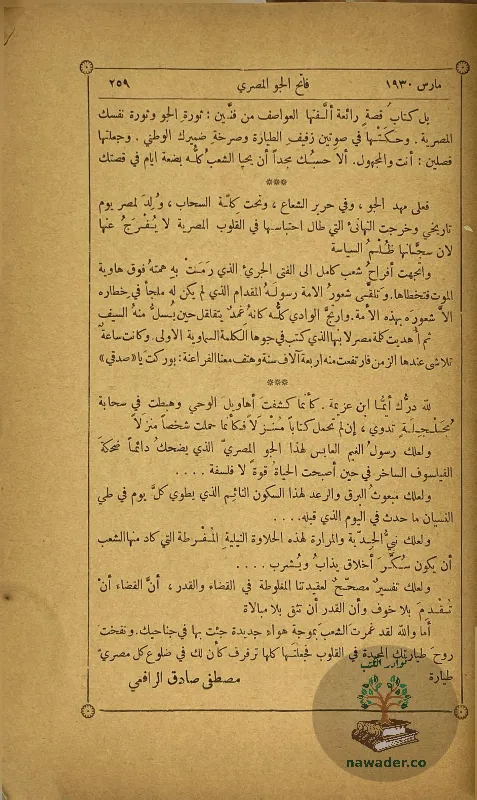 مارس ١٩٣٠ فاتح الجو المصري ٢٥٩
بل كتاب قصة رائعة ألَّفتها العواصف من فنَّين : ثورة الجو وثورة نفسك
المصرية . وحكَتْها في صوتين زفيف الطيارة وصرخة ضميرك الوطني . وجعلتها
فصلين : أنت والمجهول . ألا حسبُك مجداً أن يحيا الشعب كلُّه بضعة ايام في قصتك
***
فعلى مهد الجو ، وفي حرير الشعاع ، وتحت كلَّة السحاب ، وُلِدَ لمصر يوم
تاريخي وخرجت التهانئ التي طال احتباسها في القلوب المصرية لا يُفْرَجُ عنها
لان سجَّانها ظُلمُ السياسة
واتجهت أفراحُ شعب كامل الى الفتى الجريء الذي رَمَتْ به همتهُ فوق هاوية
الموت فتخطاها . وتلقَّى شعورُ الامة رسولَهُ المقدام الذي لم يكن له ملجأ في خطاره
الاَّ شعورَه بهذه الأمة . وارتجَّ الوادي كلُّه كأنهُ غِمدٌ يتقلقل حين يُسلُّ منهُ السيف
ثم أُهديت كلمة مصر لابنها الذي كتب في جوها الكلمة السماوية الاولى . وكانت ساعةٌ
تلاشى عندها الزمن فارتفعت منه اربعة آلاف سنة وهتف معنا الفراعنة : بوركت يا «صدقي»
***
لله درُّك أيُّها ابن عزيمة . كأنما كشفت أهاويل الوحي وهبطت في سحابة
مُجَلْجِلَةٍ تدوي ، إن لم تحمل كتاباً مُنْزلاً فكأنما حملت شخصاً منزلاً
ولعلك رسولُ الغيم العابس لهذا الجو المصريّ الذي يضحك دائماً ضحكة
الفيلسوف الساخر في حين أصبحت الحياة قوة لا فلسفة . . . .
ولعلك مبعوثُ البرق والرعد لهذا السكون النائم الذي يطوي كلَّ يوم في طي
النسيان ما حدث في اليوم الذي قبله . . . .
ولعلك نبيُّ الجديَّة والمرارة لهذه الحلاوة النيلية المُفْرطة التي كاد منها الشعب
أن يكون سُكَّرَ أخلاق يذابُ ويُشرب . . . .
ولعلك تفسيرٌ مصحّحٌ لعقيدتنا المغلوطة في القضاء والقدر ، أنَّ القضاء أنْ
تُقْدِمَ بلا خوف وأن القدر أن تثق بلا مبالاة
أما والله لقد غمرت الشعب بموجة هواء جديدة جئت بها في جناحيك . ونفخت
روح طيارتك المجيدة في القلوب فجعلتها كلها ترفرف كأن لك في ضلوع كل مصريّ
طيارة
مصطفى صادق الرافعي
نوادر الكتب
nawader.co